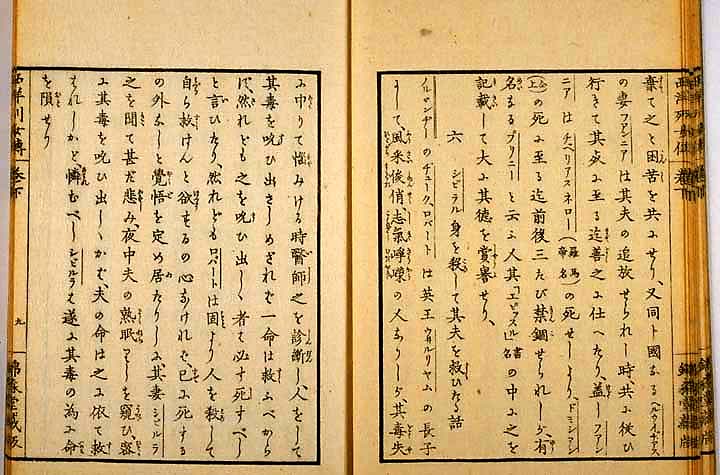 棄て之と困苦を共にせり、又同ト國なるヘルウイヂアス
の妻ファンニアは其夫の追放せられし時、共に從ひ
行きて其死に至る迄善之に仕へたり、蓋しファン
ニアはチベリアスネロー(羅馬帝名)の死せしより、ドミシアン
(上)の死に至る迄前後三たび禁錮せられしが、有
名なるプリニーと云ふ人其「エピスル」書名の中に之を
記載して大に其徳を賞譽せり、
六 シビラル身を殺して其夫を救ひたる話
イルランデーのヂューク、ロバートは英王ウヰルリヤムの長子
にして、風采俊俏志氣崢嶸の人なりしが、其毒矢
に中りて悩みける時醫師之を診斷し、人をして
其毒を吮ひ出さしめざれば一命は救ふべから
ず、然れども之を吮ひ出しゝ者は必ず死すべし
と言ひたり、然れどもロバートは固より人を殺して
自ら救けんと欲するの心なければ、已に死する
の外なしと覺悟を定め居たりしに其妻シビルラ
之を聞て甚だ悲み、夜中夫の熟眠せしを窺ひ、密
に其毒を吮ひ出しゝかば、夫の命は之に依て救
はれしかど、憐むべしシビルラは遂に其毒の為に命
を殞せり
西洋列女傳 巻下
九
錦森堂蔵版